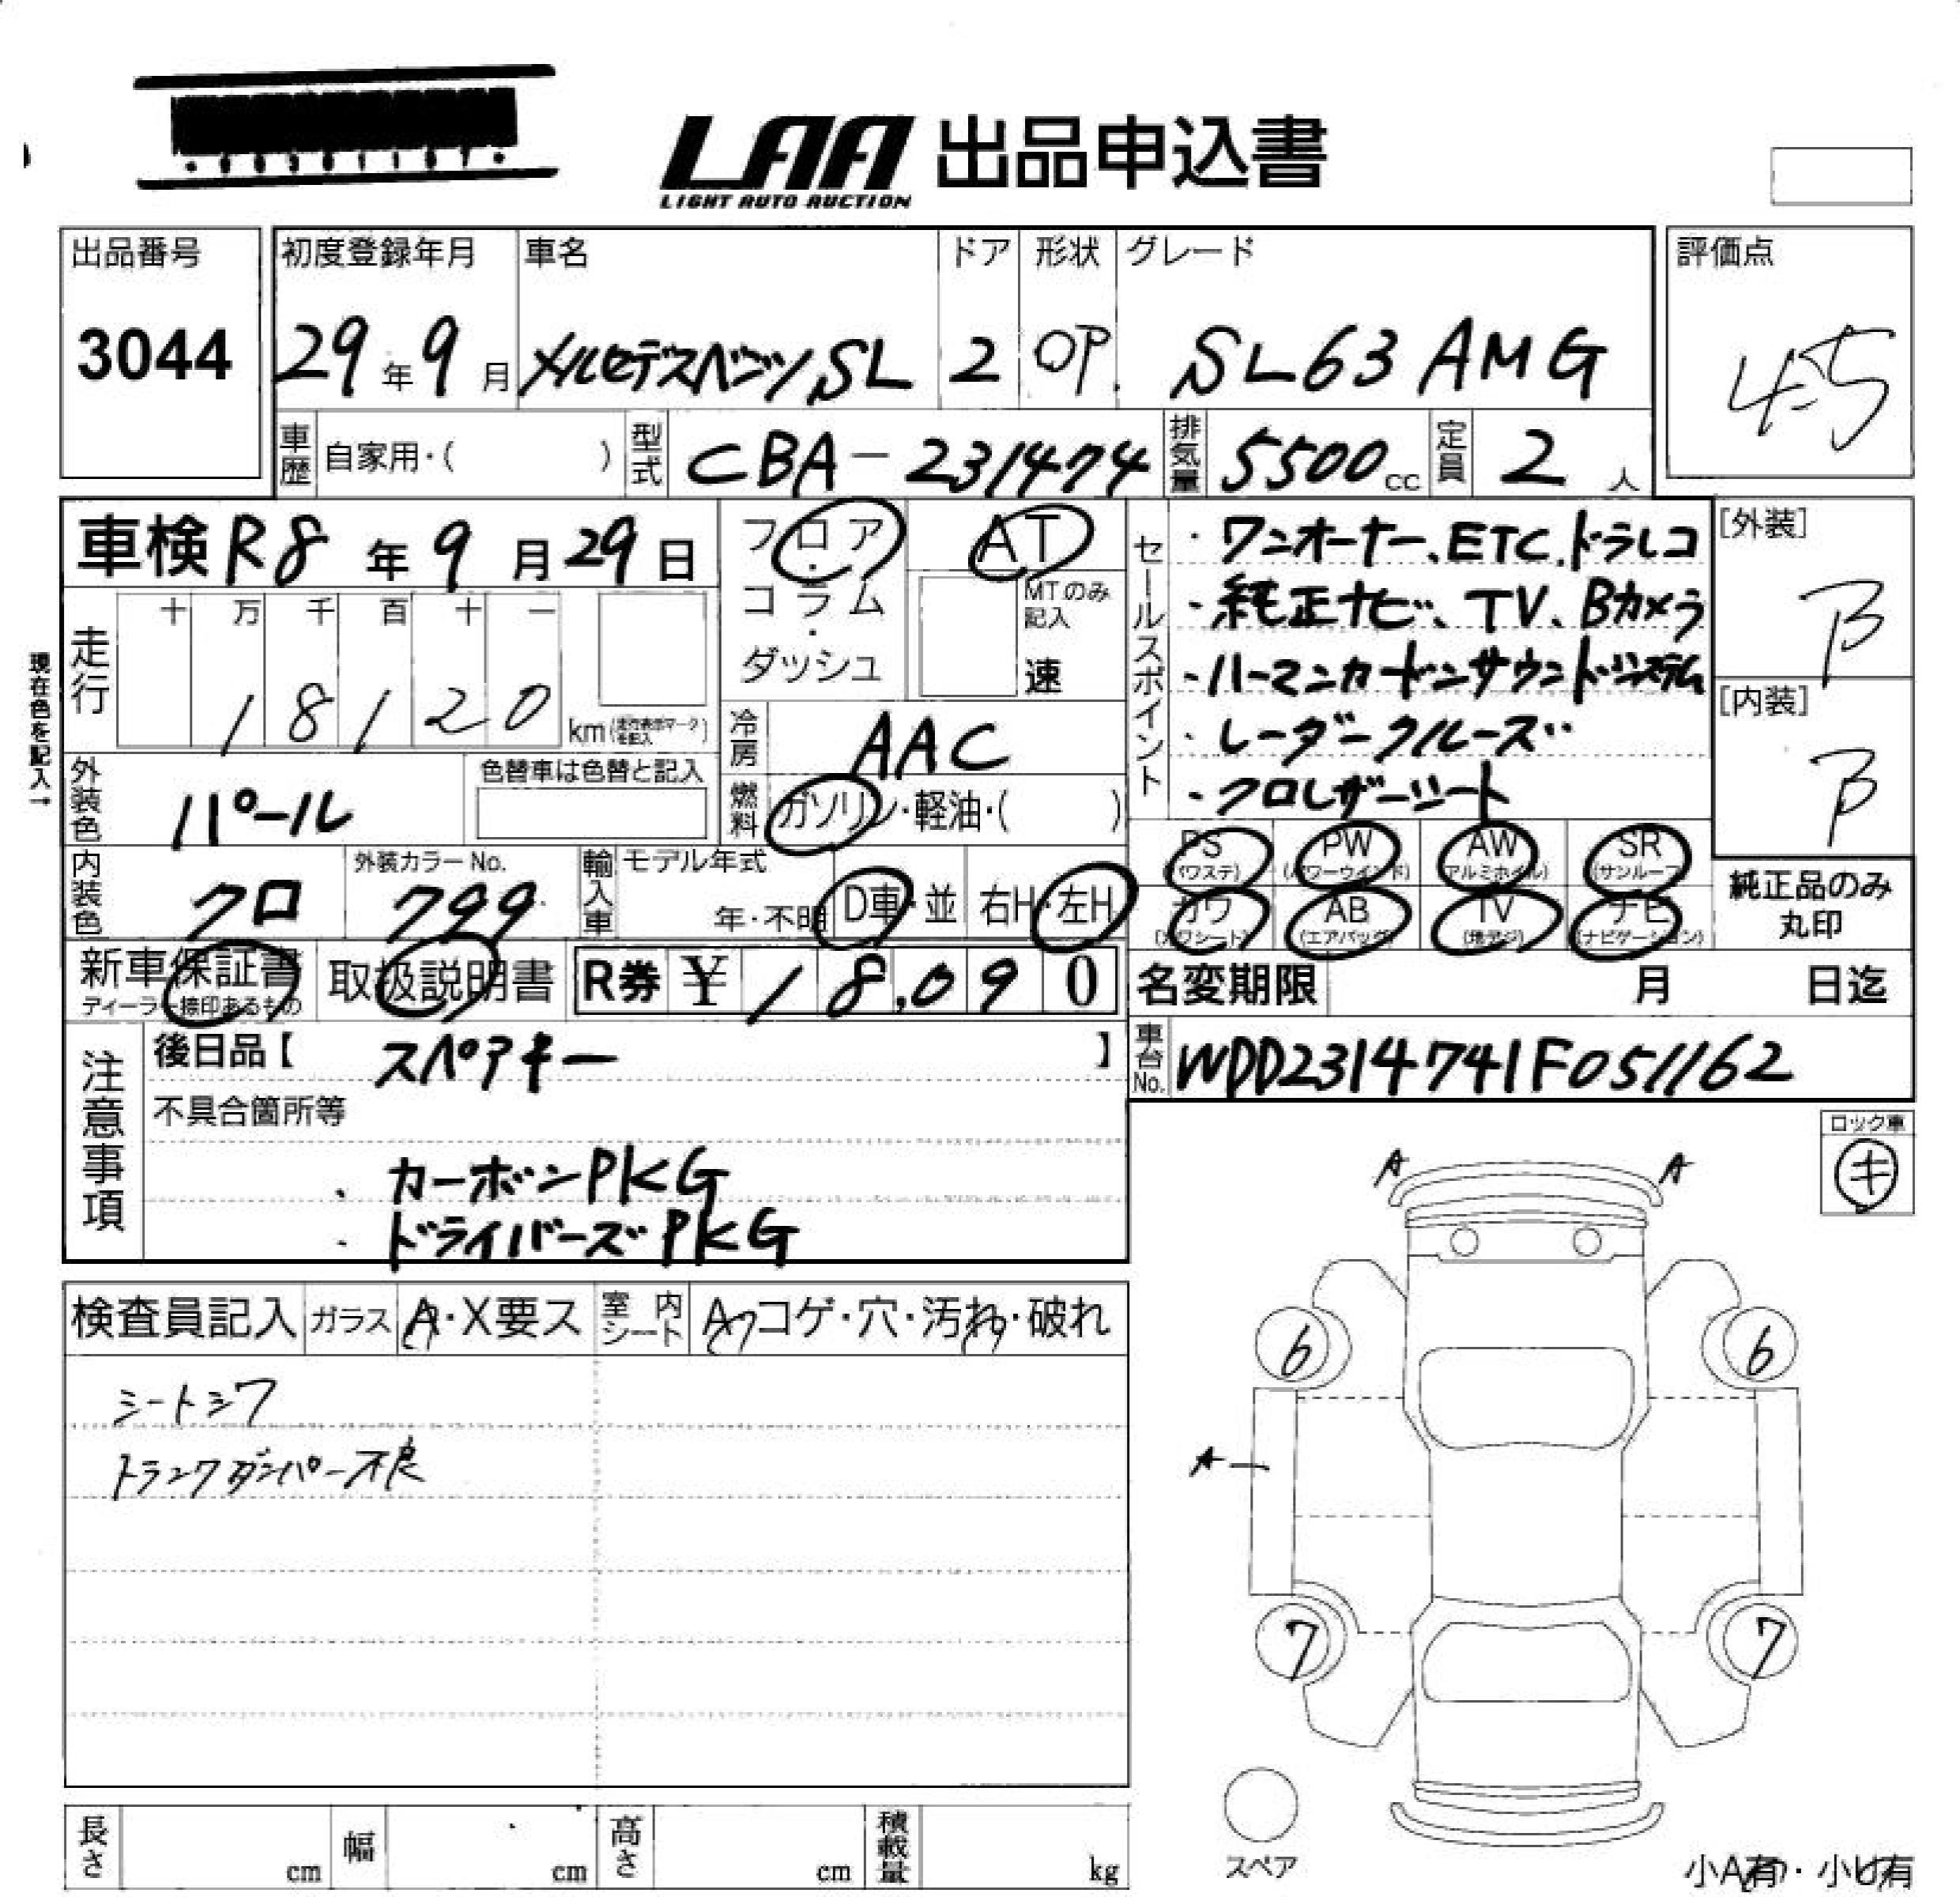 LAA 出品申込書
LIGHT AUTO AUCTION
出品番号
3044
初度登録年月
29年9月
車名
メルセデスベンツSL
ドア
2
形状
OP.
グレード
SL63 AMG
評価点
4.5
車歴 自家用・( )
型式 CBA-231474
排気量 5500cc
定員 2人
車検 R8年9月29日
フロア・コラム・ダッシュ
AT
MTのみ記入
速
セールスポイント
・ワンオーナー、ETC.ドラレコ
・純正ナビ、TV、Bカメラ
・ハーマンカードンサウンドシステム
・レーダークルーズ
・クロレザーシート
[外装]
B
[内装]
B
現在色を記入→
走行
十 万 千 百 十 一
18120
km
冷房 AAC
燃料 ガソリン・軽油・( )
外装色 パール
色替車は色替と記入
内装色 クロ
外装カラーNo.
799
輸入車
モデル年式
年・不明
D車・並
右H・左H
PS (パワステ)
PW (パワーウインド)
AW (アルミホイル)
SR (サンルーフ)
カワ (カワシート)
AB (エアバッグ)
TV (地デジ)
ナビ (ナビゲーション)
純正品のみ
丸印
新車保証書
ディーラー捺印あるもの
取扱説明書
R券 ¥18,090
名変期限 月 日迄
車台No. WDD2314741F051162
注意事項
後日品【 スペアキー 】
不具合箇所等
・カーボンPKG
・ドライバーズPKG
ロック車
キ
検査員記入
ガラス A・X要ス
室内シート
コゲ・穴・汚れ・破れ
シートシワ
トランクダンパー不良
A A
6 6
A
7 7
スペア
長さ cm
幅 cm
高さ cm
積載量 kg
小A有・小U有